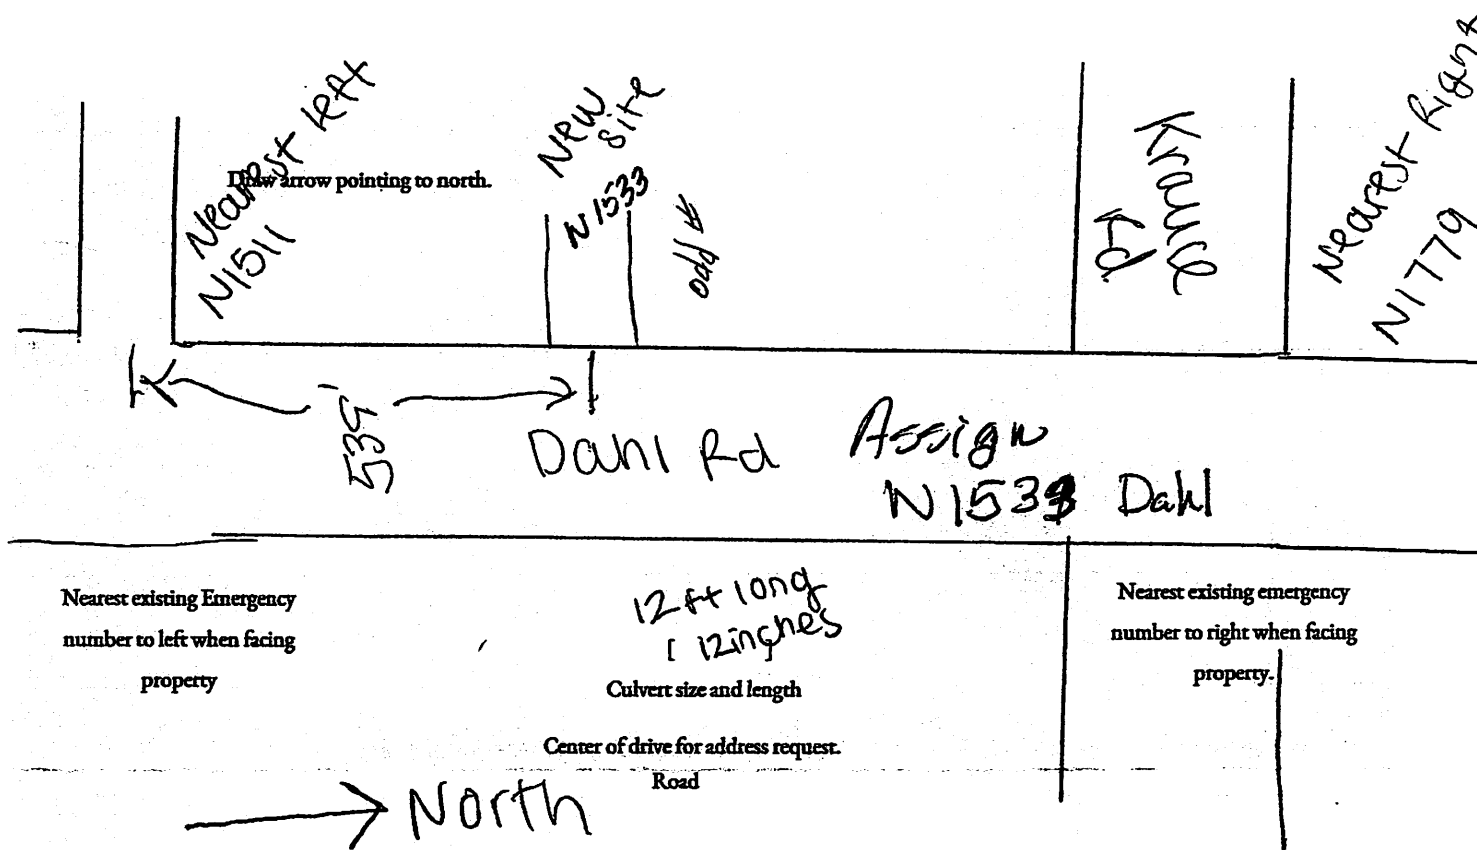 Nearest Left
N1511
Draw arrow pointing to north.
New
Site
N1533
odd
Krause
Rd
Nearest Right
N1779
539'
Dahl Rd
Assign
N1533 Dahl
Nearest existing Emergency
number to left when facing
property
12 ft long
12 inches
Culvert size and length
Center of drive for address request.
Road
Nearest existing emergency
number to right when facing
property.
North